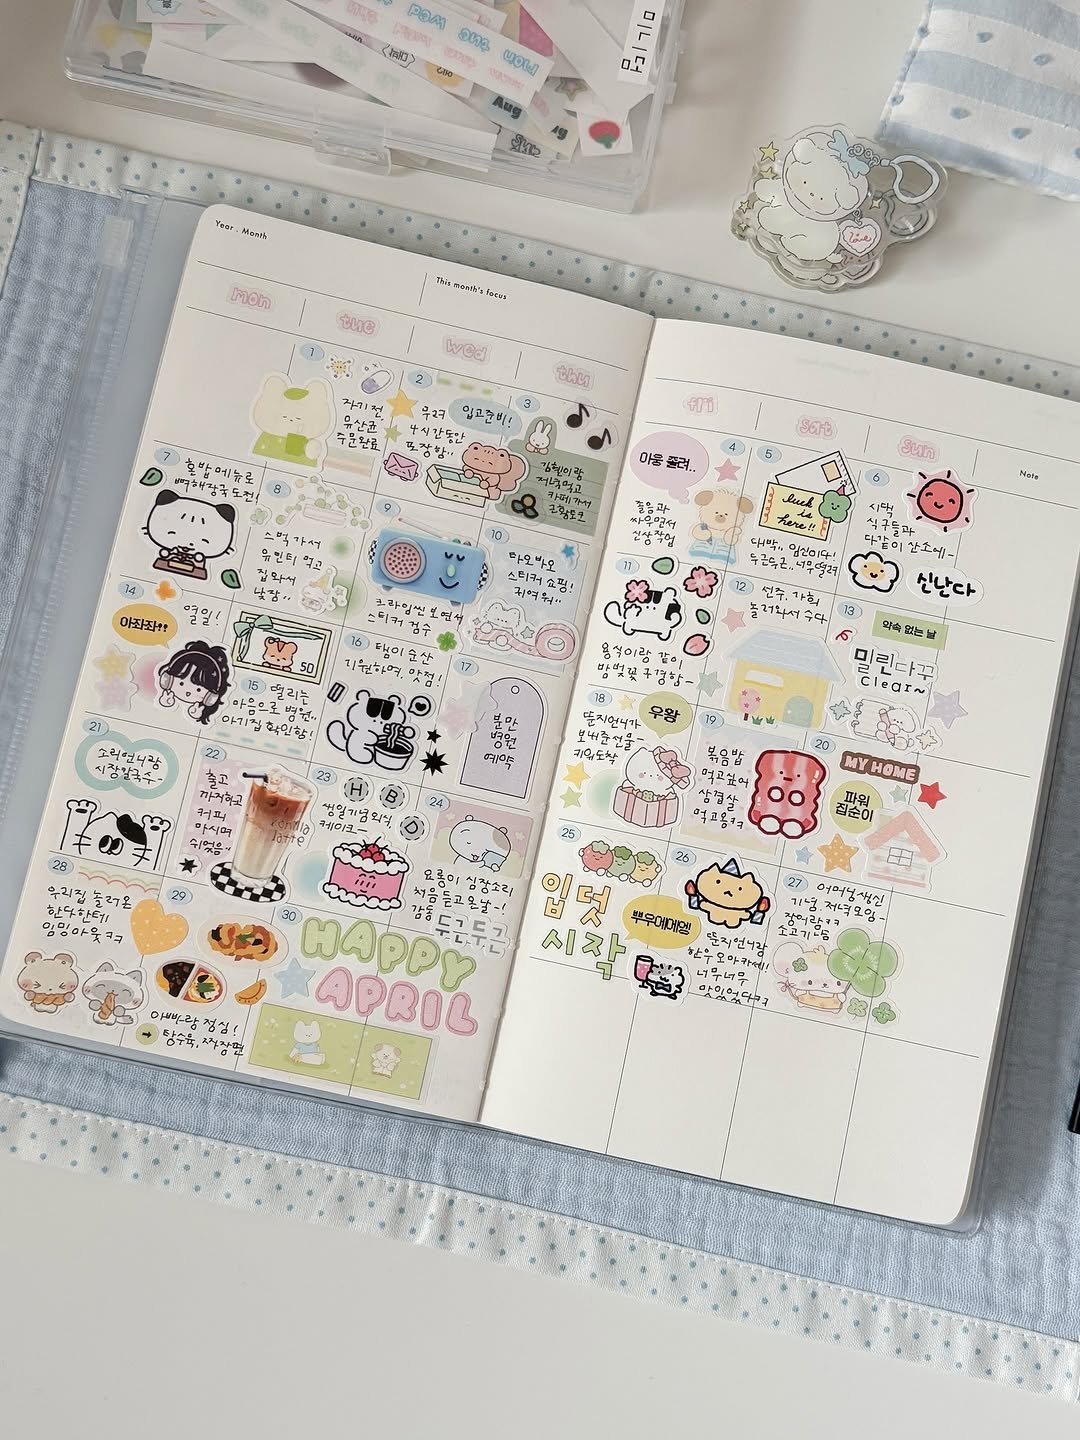 미니멈
Aug
Year . Month
This month's focus
mon
tue
wed
thu
fri
sat
sun
Note
1
자기 전
유산균
주문완료
2
무려
4시간동안
포장함..
입고준비!
3
저녁먹고
카페가서
근황토크
4
아웅 쫄려..
졸음과
싸우면서
신상작업
5
luck
is
here!!
대박.. 임신이다!
두근두근..너무떨려
6
시댁
식구들과
다같이 산소에~
신난다
7
혼밥 메뉴로
뼈해장국 도전!
8
가서
먹고
집와서
낮잠..
9
보면서
스티커 검수
10
타오바오
스티커 쇼핑!
귀여워..
11
용석이랑 같이
밤벚꽃 구경함~
12
선주, 가희
놀러와서 수다
13
약속 없는 날
밀린다꾸
clear~
14
열일!
아좌좌!!
50
15
떨리는
마음으로 병원..
아기집 확인함!
16
탬이 순산
기원하며, 맛점!
17
분만
병원
예약
18
뚠지언니가
보내준선물~
키위도착
우왕
19
볶음밥
먹고싶어
삼겹살
먹고옴ㅋㅋ
20
MY HOME
파워
집순이
21
소리언니랑
시장칼국수~
22
출고
끝하고
커피
마시며
쉬었음..
23
H
B
D
생일기념 외식,
케이크~
24
요롱이 심장소리
처음 듣고 온날~!
감동
두근두근
25
입덧
시작
26
뿌우에에엥!
뚠지언니랑
한우 오마카세!
너무너무
맛있었다ㅋㅋ
27
어머님생신
기념, 저녁모임~
장어랑
소고기
28
우리집 놀러온
한다한테
임밍아웃ㅋㅋ
29
아빠랑 점심!
탕수육, 짜장면
30
HAPPY
APRIL